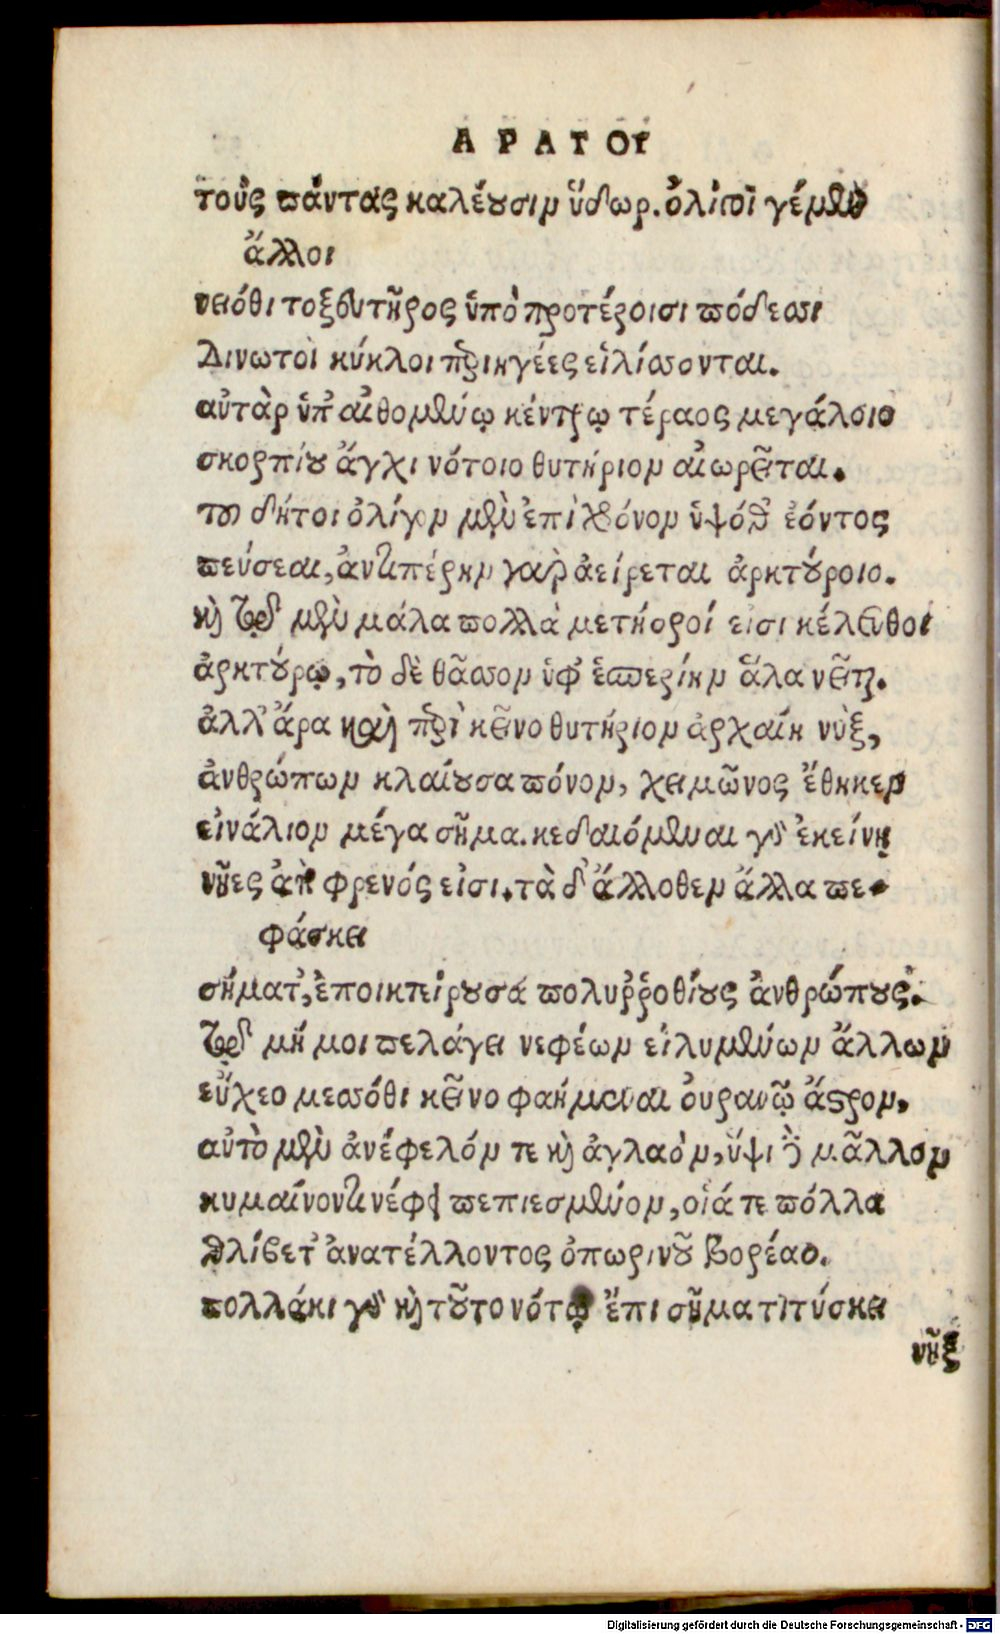 ΑΡΑΤΟΥ
τοὺς πάντας καλέουσιν ὕδωρ. ὀλίγοι γέμὲν
ἄλλοι
νειόθι τοξευτῆρος ὑπὸ προτέροισι πόδεσσι
Δινωτοὶ κύκλοι περιηγέες εἱλίσσονται.
αὐτὰρ ὑπ' αἰθομένῳ κέντρῳ τέραος μεγάλοιο
σκορπίου ἄγχι νότοιο θυτήριον αἰωρεῖται.
τοῦ δήτοι ὀλίγον μὲν ἐπὶ χρόνον ὑψόθ' ἐόντος
πεύσεαι, ἀντιπέρην γὰρ ἀείρεται ἀρκτούροιο.
καὶ τῷ μὲν μάλα πολλὰ μετήοροί εἰσι κέλευθοι
ἀρκτούρῳ, τὸ δὲ θᾶσσον ὑφ' ἑσπερίην ἅλα νεῖται.
ἀλλ' ἄρα καὶ περὶ κεῖνο θυτήριον ἀρχαίη νὺξ,
ἀνθρώπων κλαίουσα πόνον, χειμῶνος ἔθηκεν
εἰνάλιον μέγα σῆμα. κεδαιόμεναι γὰρ ἐκείνῃ
νῆες ἀπὸ φρενός εἰσι. τὰ δ' ἄλλοθεν ἄλλα πε-
φάσκει
σήματ', ἐποικτείρουσα πολυῤῥοθίους ἀνθρώπους.
τῷ μή μοι πελάγει νεφέων εἰλυμένων ἄλλων
εὔχεο μεσσόθι κεῖνο φαήμεναι οὐρανῷ ἄστρον,
αὐτὸ μὲν ἀνέφελόν τε καὶ ἀγλαόν, ὕψι δὲ μᾶλλον
κυμαίνοντι νέφει πεπιεσμένον, οἷά τε πόλλα
θλίβετ' ἀνατέλλοντος ὀπωρινοῦ βορέαο.
πολλάκι γὰρ καὶ τοῦτο νότῳ ἔπι σῆμα τιτύσκει
νὺξ
Digitalisierung gefördert durch die Deutsche Forschungsgemeinschaft - DFG